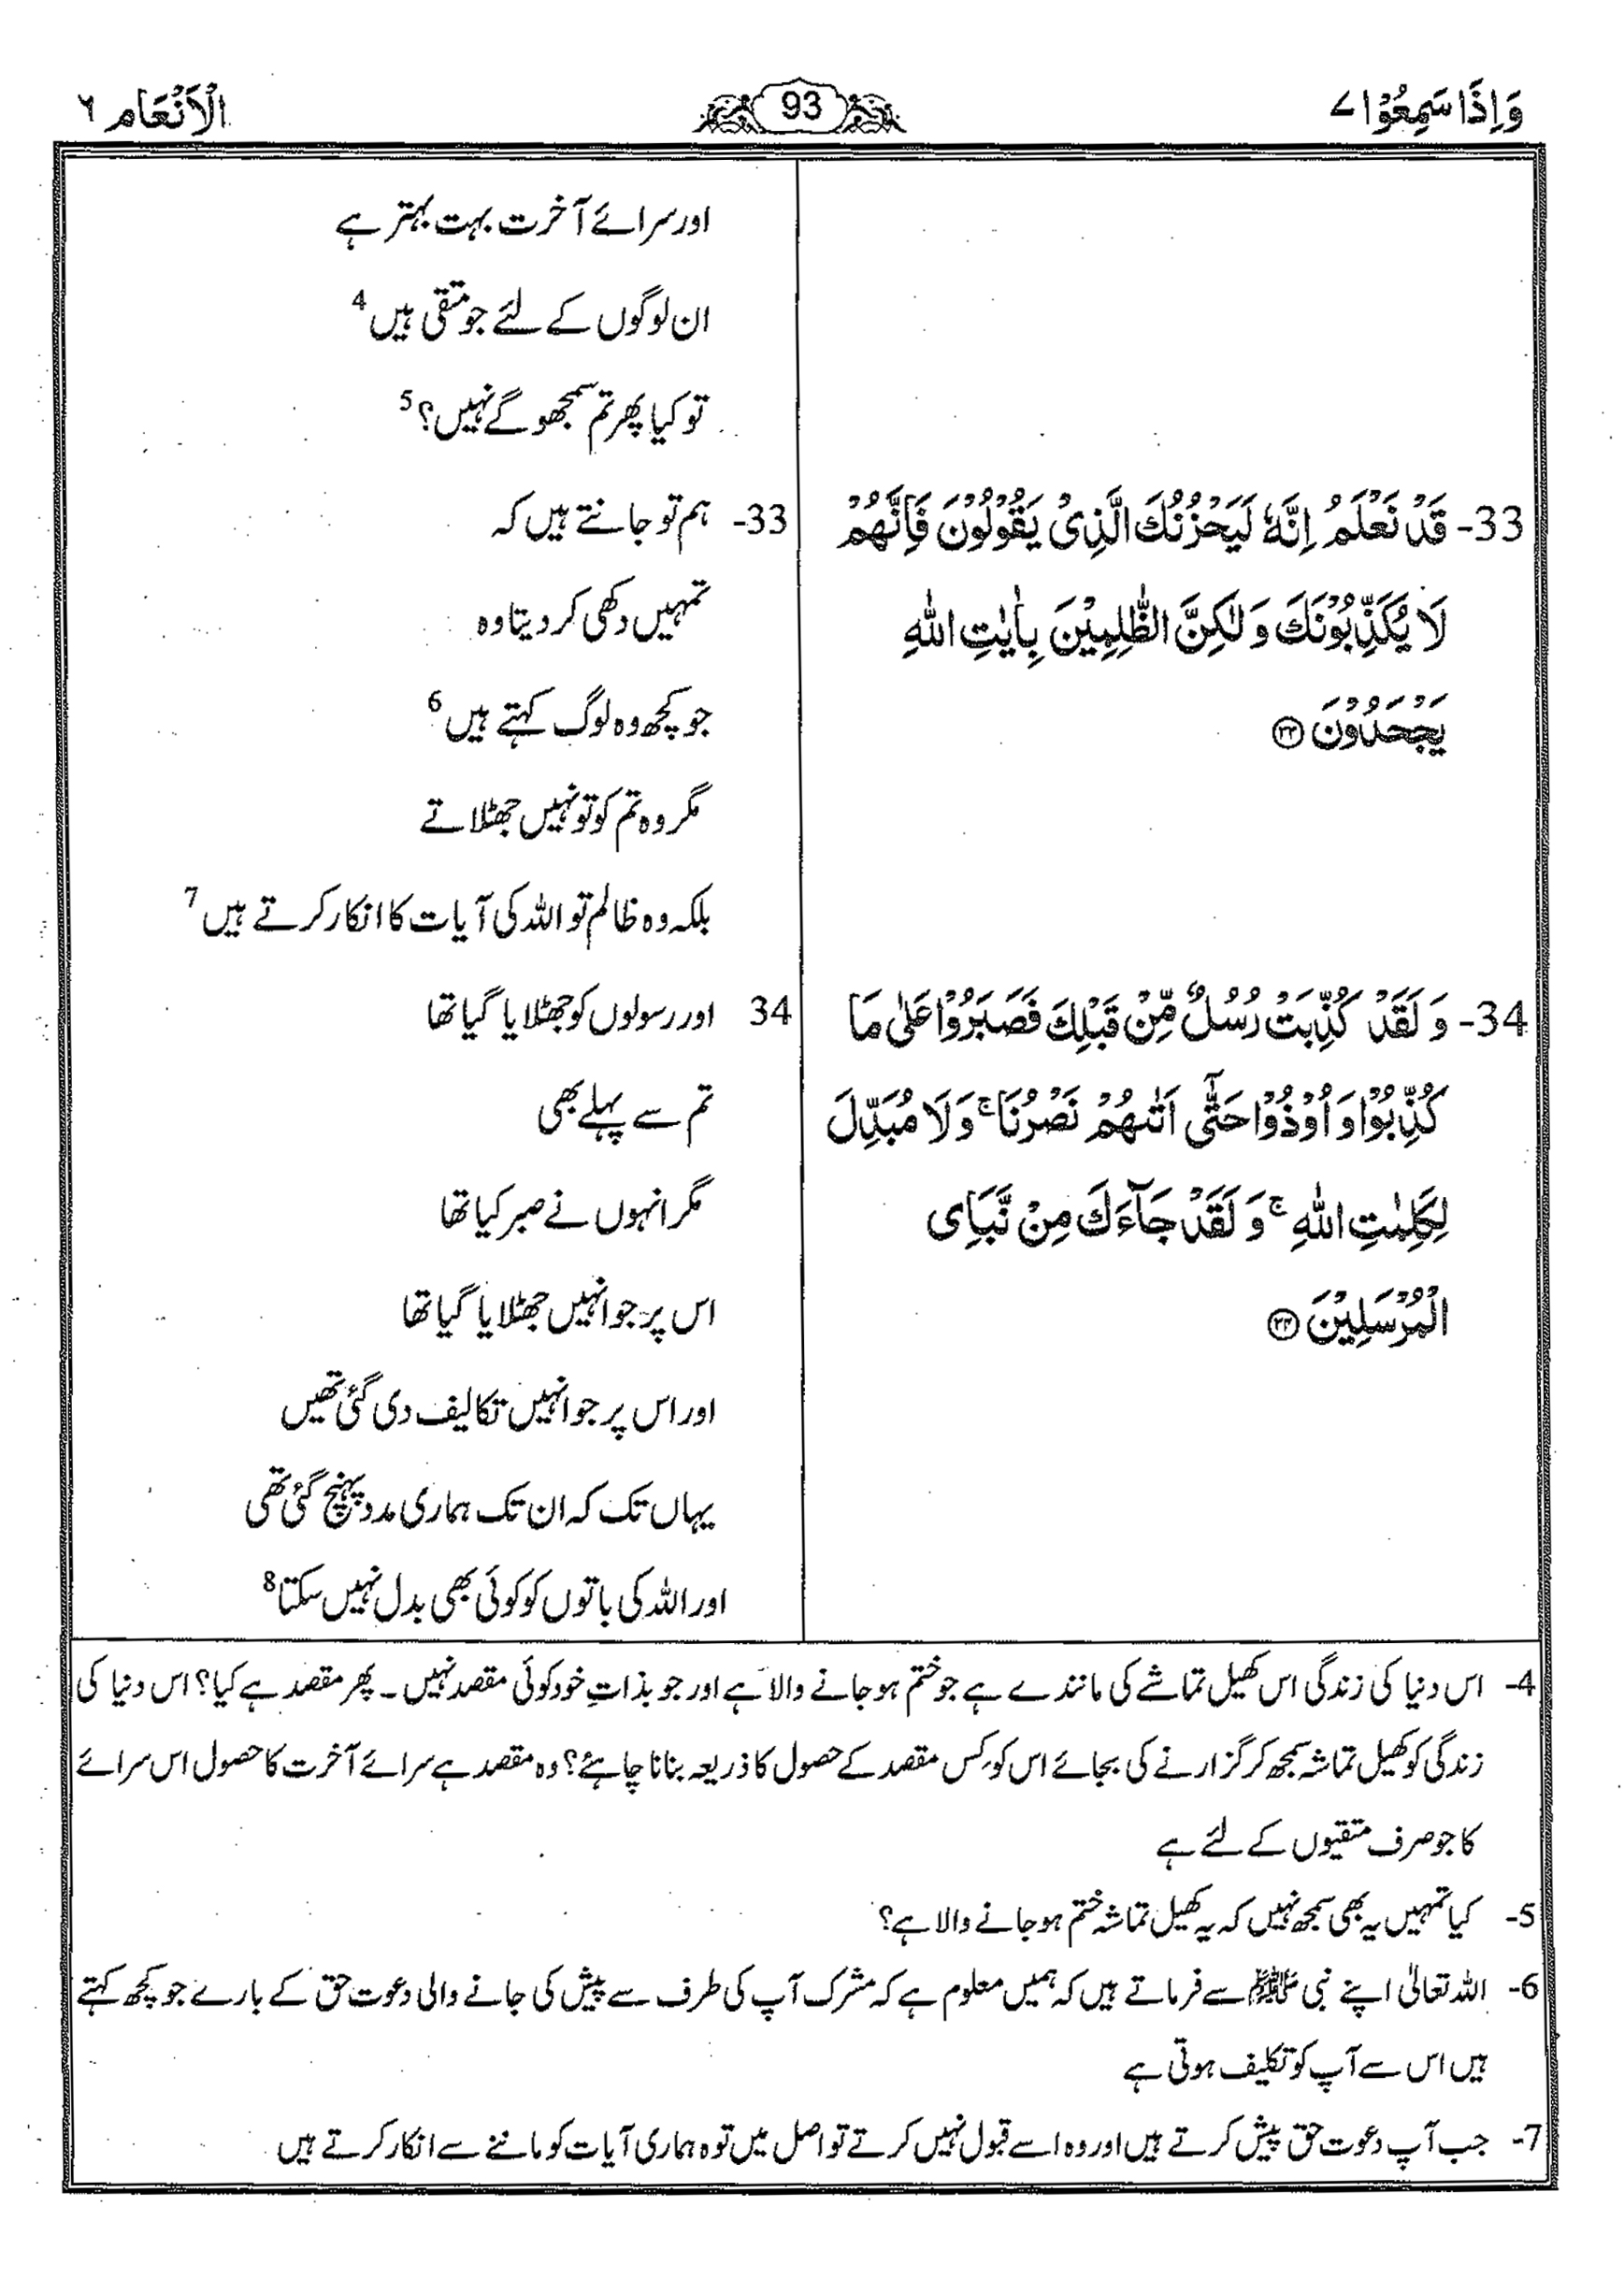 وَاِذَا سَمِعُوْا ۷
93
الْاَنْعَام ۶
اور سرائے آخرت بہت بہتر ہے
ان لوگوں کے لئے جو متقی ہیں 4
تو کیا پھر تم سمجھو گے نہیں؟ 5
33- قَدْ نَعْلَمُ اِنَّهٗ لَيَحْزُنُكَ الَّذِىْ يَقُوْلُوْنَ فَاِنَّهُمْ
لَا يُكَذِّبُوْنَكَ وَ لٰكِنَّ الظّٰلِمِيْنَ بِاٰيٰتِ اللّٰهِ
يَجْحَدُوْنَ ۳۳
33- ہم تو جانتے ہیں کہ
تمہیں دکھی کر دیتا وہ
جو کچھ وہ لوگ کہتے ہیں 6
مگر وہ تم کو تو نہیں جھٹلاتے
بلکہ وہ ظالم تو اللہ کی آیات کا انکار کرتے ہیں 7
34- وَ لَقَدْ كُذِّبَتْ رُسُلٌ مِّنْ قَبْلِكَ فَصَبَرُوْا عَلٰى مَا
كُذِّبُوْا وَ اُوْذُوْا حَتّٰٓى اَتٰىهُمْ نَصْرُنَا ۚ وَ لَا مُبَدِّلَ
لِكَلِمٰتِ اللّٰهِ ۚ وَ لَقَدْ جَآءَكَ مِنْ نَّبَاِى
الْمُرْسَلِيْنَ ۳۴
34 اور رسولوں کو جھٹلایا گیا تھا
تم سے پہلے بھی
مگر انہوں نے صبر کیا تھا
اس پر جو انہیں جھٹلایا گیا تھا
اور اس پر جو انہیں تکالیف دی گئی تھیں
یہاں تک کہ ان تک ہماری مدد پہنچ گئی تھی
اور اللہ کی باتوں کو کوئی بھی بدل نہیں سکتا 8
4- اس دنیا کی زندگی اس کھیل تماشے کی مانند ہے جو ختم ہو جانے والا ہے اور جو بذاتِ خود کوئی مقصد نہیں۔ پھر مقصد ہے کیا؟ اس دنیا کی
زندگی کو کھیل تماشہ سمجھ کر گزارنے کی بجائے اس کو کس مقصد کے حصول کا ذریعہ بنانا چاہئے؟ وہ مقصد ہے سرائے آخرت کا حصول اس سرائے
کا جو صرف متقیوں کے لئے ہے
5- کیا تمہیں یہ بھی سمجھ نہیں کہ یہ کھیل تماشہ ختم ہو جانے والا ہے؟
6- اللہ تعالیٰ اپنے نبی ﷺ سے فرماتے ہیں کہ ہمیں معلوم ہے کہ مشرک آپ کی طرف سے پیش کی جانے والی دعوت حق کے بارے جو کچھ کہتے
ہیں اس سے آپ کو تکلیف ہوتی ہے
7- جب آپ دعوت حق پیش کرتے ہیں اور وہ اسے قبول نہیں کرتے تو اصل میں تو وہ ہماری آیات کو ماننے سے انکار کرتے ہیں